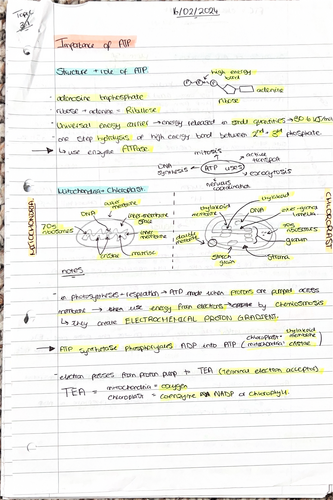 Topic
16/02/2024
Importance of ATP
Structure + role of ATP
high energy
bond
adenine
ribose
adenosine triphosphate
ribose + adenine =
Universal energy carrier → energy released in small quantities →
one step hydrolysis of high energy bond between 2nd + 3rd phosphate
↳ use enzyme ATPase
mitosis
active
transport
DNA
synthesis
ATP uses
exocytosis
nervous
coordination
Mitochondria + Chloroplast
MITOCHONDRIA
outer
membrane
DNA
inter-membrane
space
70s
ribosomes
inner
membrane
cristae
matrix
CHLOROPLAST
thylakoid
thylakoid
membrane
DNA
inter-granal
lamella
70s
ribosomes
double
membrane
granum
starch
grain
stroma
notes
in photosynthesis + respiration → ATP made when protons are pumped across
membrane → then use energy from electrons by chemiosmosis
↳ they create ELECTROCHEMICAL PROTON GRADIENT
ATP synthetase phosphorylates ADP into ATP
chloroplast = thylakoid membrane
mitochondria = cristae
electron passes from proton pump to TEA (terminal electron acceptor)
TEA = mitochondria = oxygen
chloroplast = coenzyme NADP or chlorophyll